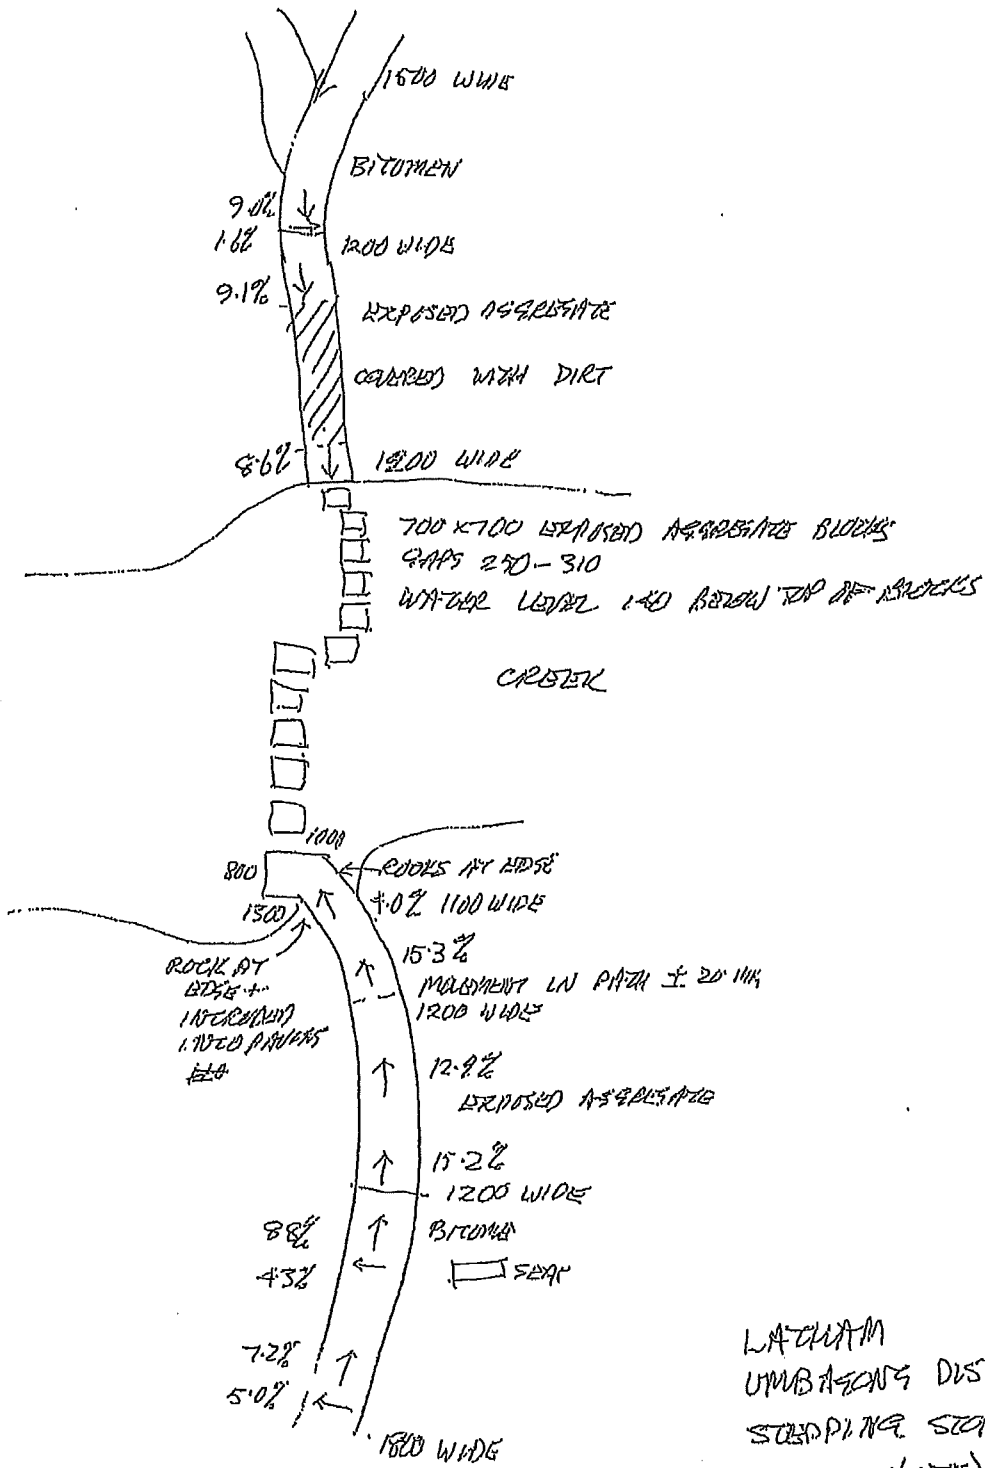 1500 WIDE
BITUMEN
9.0%
1.6%
1200 WIDE
9.1%
EXPOSED AGGREGATE
COVERED WITH DIRT
8.6%
1200 WIDE
700 X 700 EXPOSED AGGREGATE BLOCKS
GAPS 250-310
WATER LEVEL BELOW TOP OF BLOCKS
CREEK
1000
800
ROCKS AT EDGE
1100 WIDE
1300
15.3%
ROCK AT
EDGE +
INTRUDED
INTO PAVERS
MOVEMENT IN PATH ± 20
1200 WIDE
12.9%
EXPOSED AGGREGATE
15.2%
1200 WIDE
8.8%
BITUMEN
4.3%
SEAT
7.2%
5.0%
1800 WIDE
LATHAM
UMBAGONG DIS
STEPPING STO